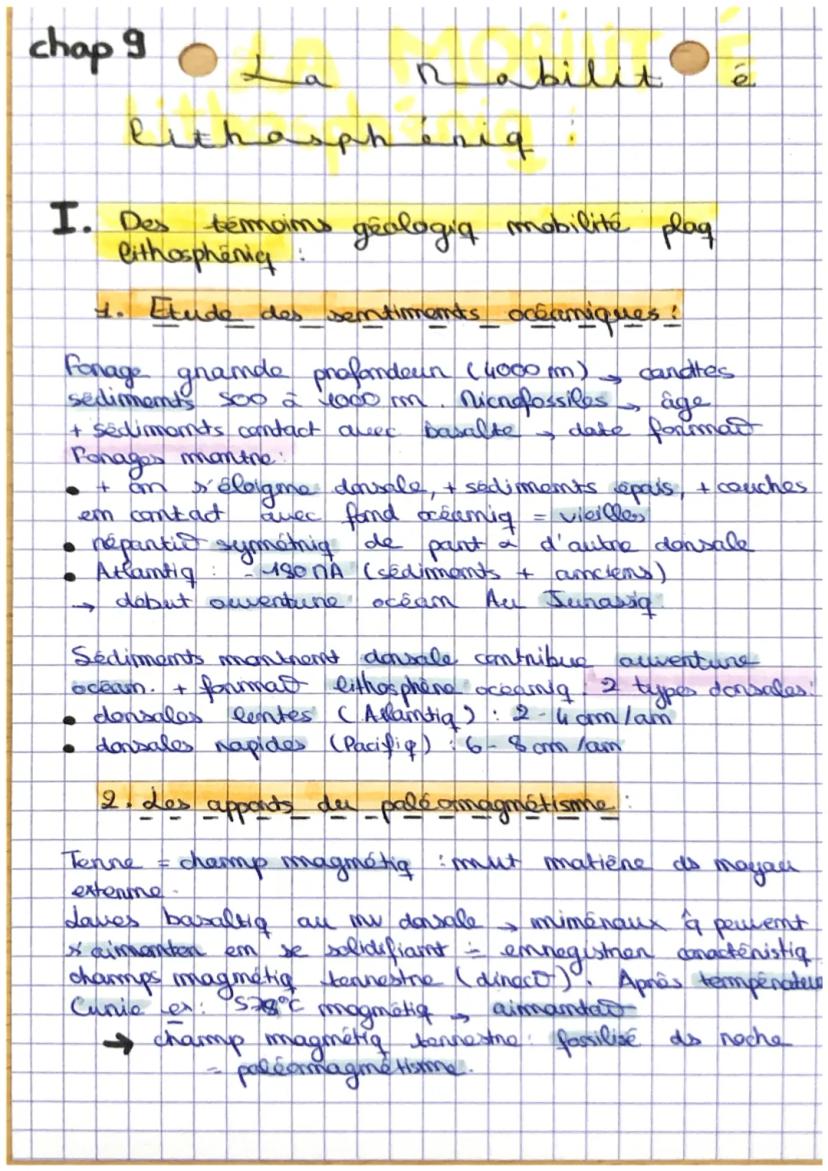 chap 9
La Mobilité
lithosphériq :
I. Des témoins géologiq mobilité plaq
lithosphériq :
1. Etude des sentiments océaniques :
Forage grande profondeur (4000 m) → carottes
sédiments 500 à 1000 m. Microfossiles → âge
+ sédiments contact avec basalte → date format°
Forages montre :
• + on s'éloigne dorsale, + sédiments épais, + couches
en contact avec fond océaniq = vieilles
• répartit° symétriq de part & d'autre dorsale
• Atlantiq : - 180 MA (sédiments + anciens)
→ début ouverture océan Au Jurassiq
Sédiments montrent dorsale contribue ouverture
océan. + format° lithosphère océaniq. 2 types dorsales :
• dorsales lentes (Atlantiq) : 2-4 cm/an
• dorsales rapides (Pacifiq) : 6-8 cm/an
2. Les apports du paléomagnétisme :
Terre = champ magnétiq : mvt matière ds noyau
externe.
Laves basaltiq au nv dorsale → minéraux q peuvent
s'aimanter en se solidifiant = enregistrer caractéristiq
champs magnétiq terrestre (direct°). Après température
Curie ex: 578°C magnétiq → aimantat°
→ champ magnétiq terrestre fossilisé ds roche
= paléomagnétisme.